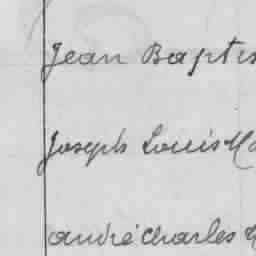 Jean Baptis
Joseph Louis Ma
andré charles